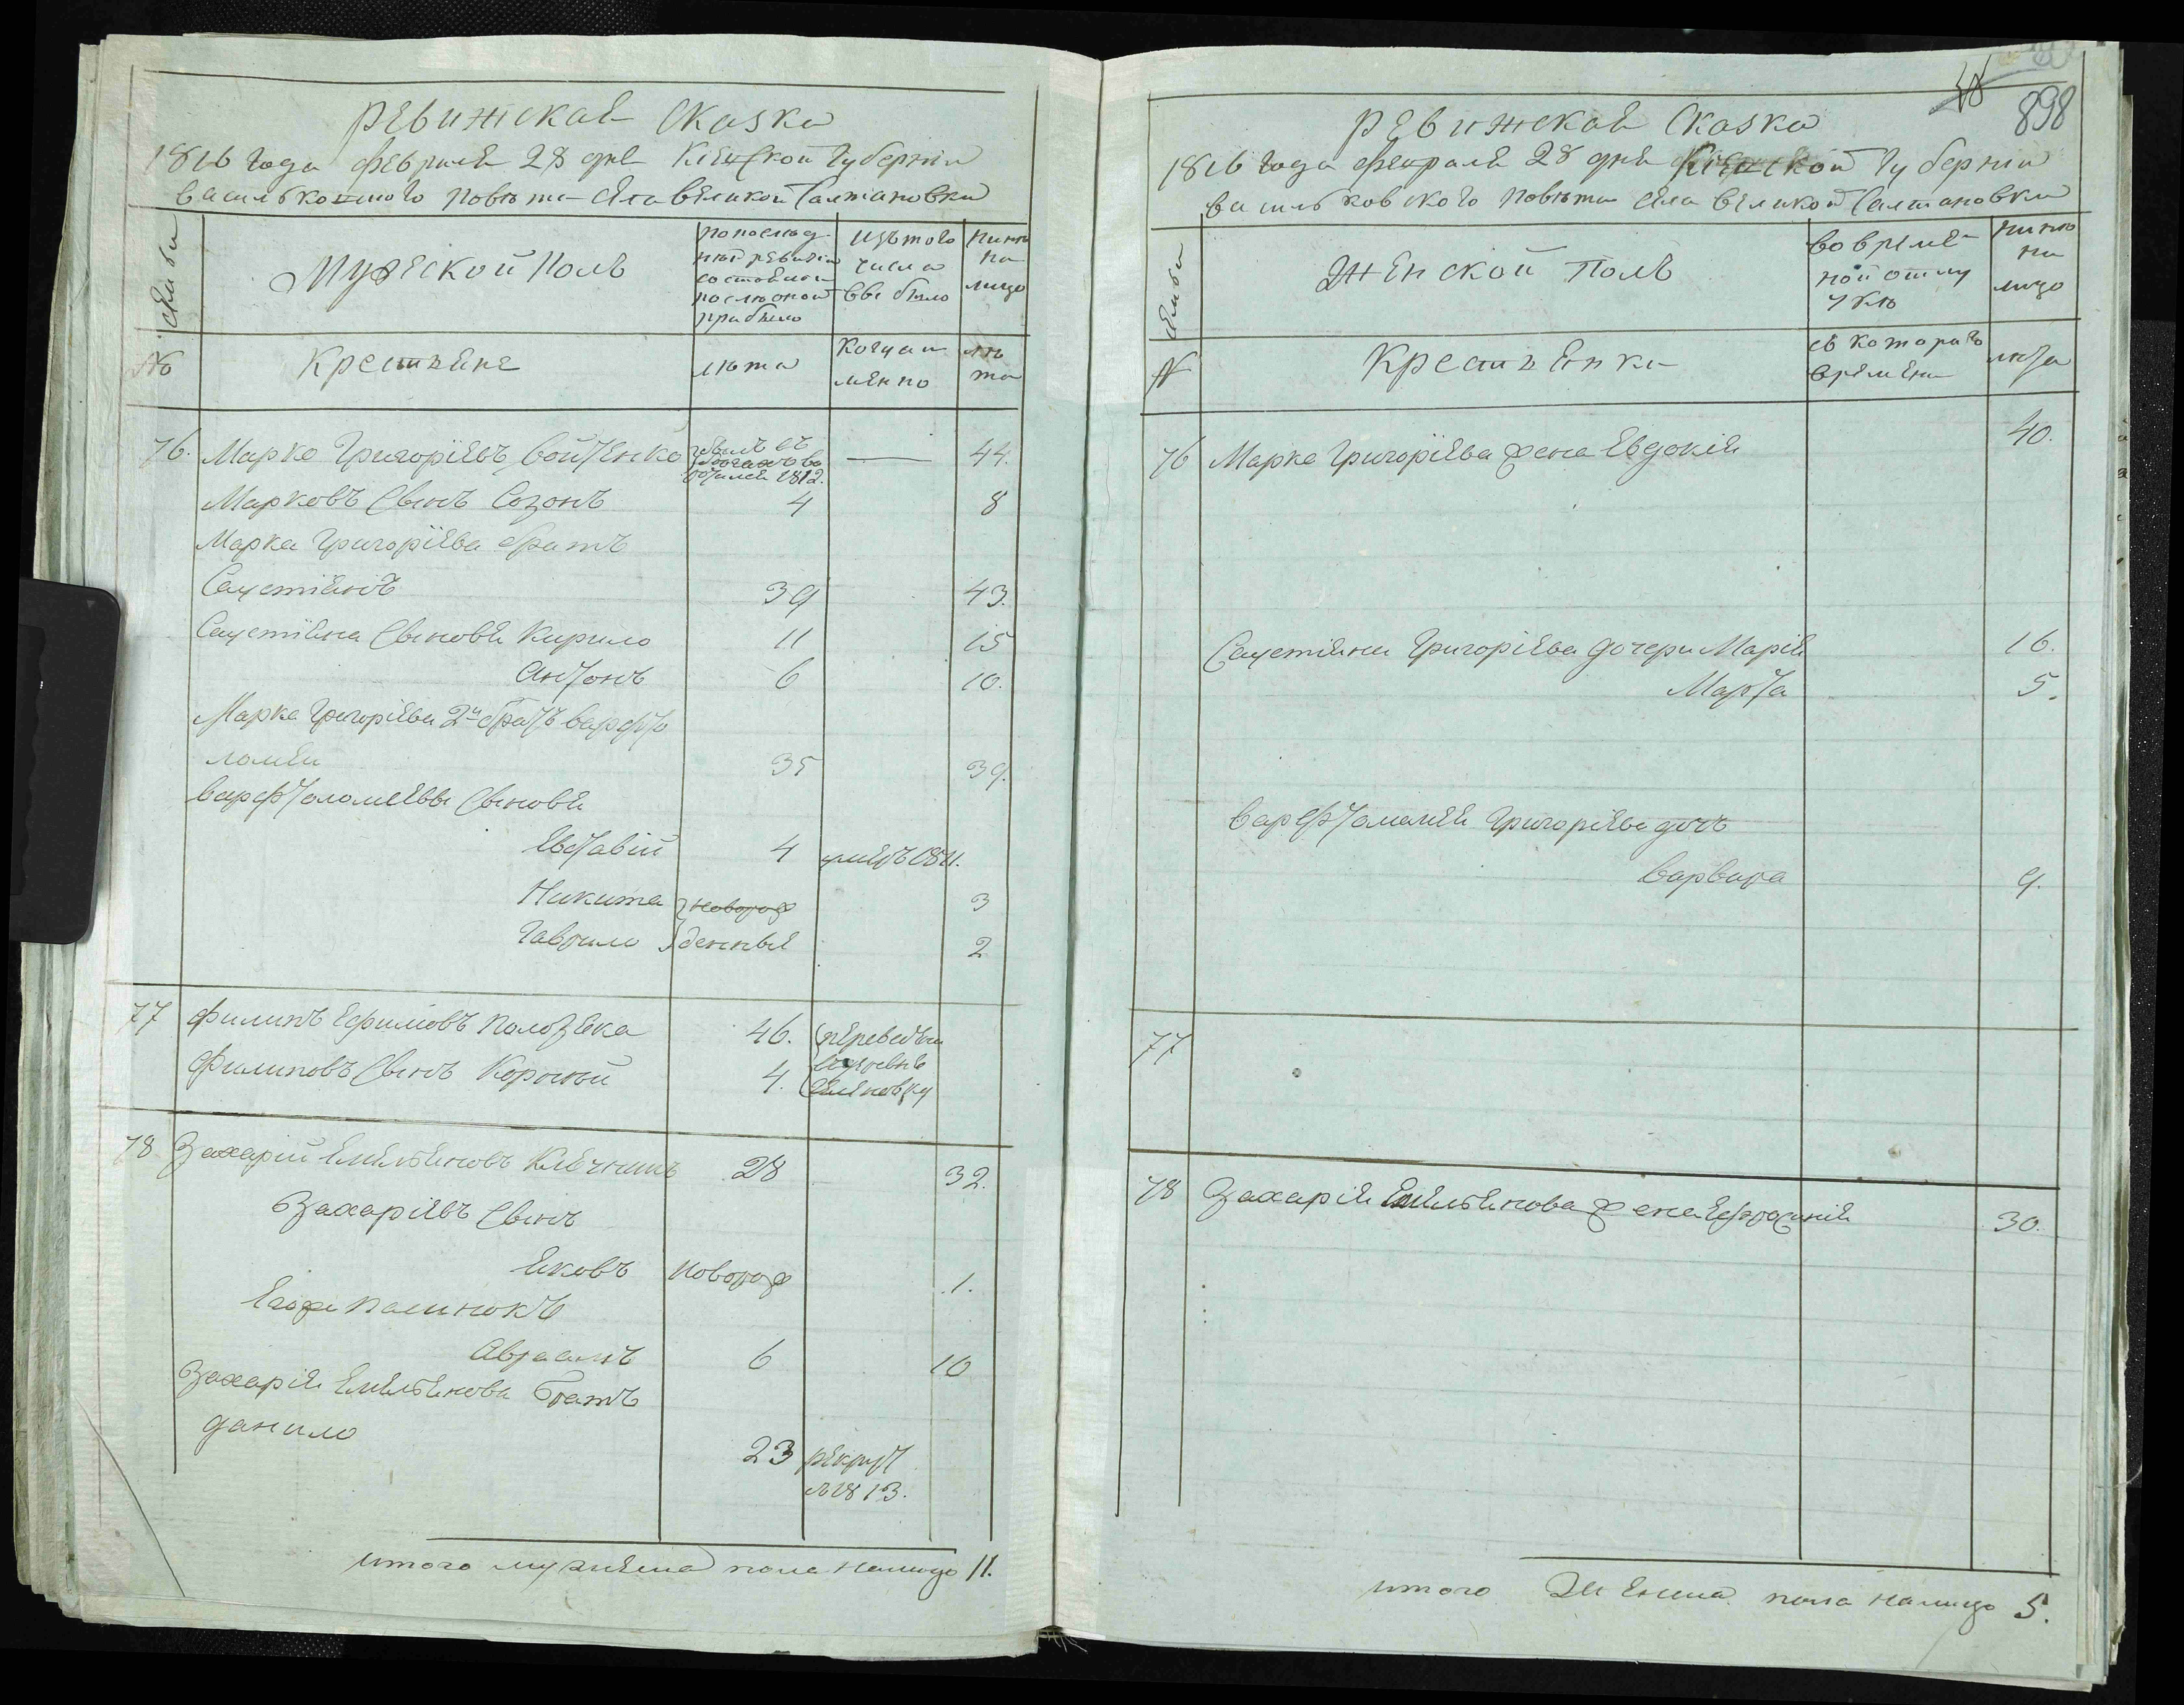 Ревижская Сказка
1816 года февраля 28 дня Кіевской Губерніи
васильковского повѣта села великой Салтановки
семьи
Мужеской Полъ
по послед
ней ревизіи
состояло и
после оной
прибыло
изъ того
числа
выбыло
ныне
на
лицо
№
Крестьяне
лѣта
когда и
менно
лѣ
та
76. Марко Григоріевъ войтенко
1812. — 44.
Марковъ Сынъ Созонъ 4 8
Марка Григоріева братъ
Саустіянъ 39 43.
Саустіяна Сыновья Кирило 11 15
Антонъ 6 10.
Марка Григоріева 2й братъ варфто
ломей 35 39.
варфтоломеевы Сыновья
Евстафій 4 умеръ 1811.
Никита новорож 3
Гаврило денные 2
77 Филипъ Ефимовъ 46. переведены
Филиповъ Сынъ Корней 4. в деревню
78 Захарій Емельяновъ 28 32.
Захаріевъ Сынъ
Яковъ новорож 1.
Его же
Авраамъ 6 10
Захарія Емельянова братъ
данило 23 рекрут
в 1813.
итого мужеска пола налицо 11.
898
Ревижская Сказка
1816 года февраля 28 дня Кіевской Губерніи
васильковского повѣта села великой Салтановки
семьи
Женской полъ
во времен
ной отлу
чкѣ
ныне
на
лицо
№
Крестьянки
съ котораго
времени
лѣта
76 Марка Григоріева жена Евдокія 40.
Саустіяна Григоріева дочери Марія 16.
Марта 5.
варфтоломея Григоріева дочь
варвара 9.
77
78 Захарія Емельянова жена Ефросинія 30.
итого женска пола налицо 5.